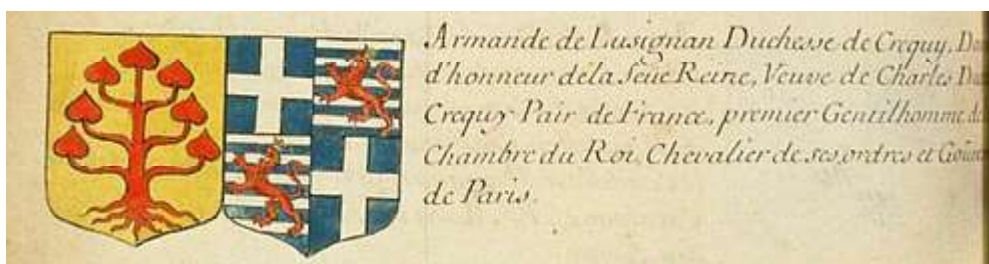 Armande de Lusignan Duchesse de Crequy, Da
d'honneur dela feüe Reine, Veuve de Charles Du
Crequy Pair de France, premier Gentilhomme de
Chambre du Roi, Chevalier de ses ordres et Gouver
de Paris.